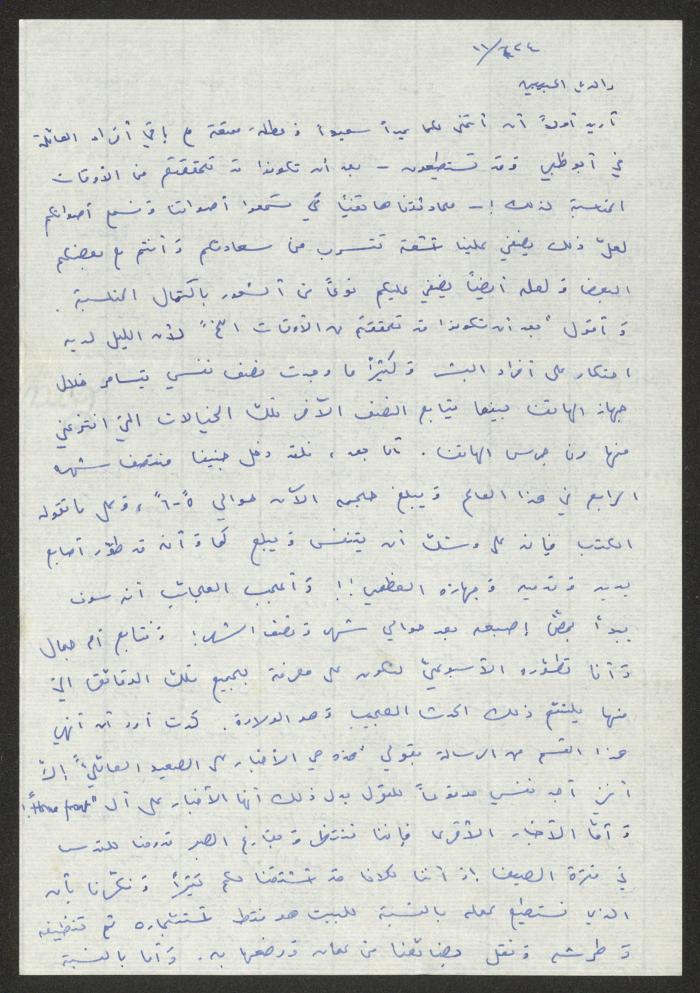 ٢٤/٦/١١
والديّ الحبيبين
أريد أولاً أن أتمنى لكما عيداً سعيداً وعطلة ممتعة مع باقي أفراد العائلة
في أبو ظبي وقد تستطيعون - بعد أن تكونوا قد تحققتم من الأوقات
المناسبة لذلك! - محادثتنا هاتفياً كي تسمعوا أصواتنا ونسمع أصواتكم
لعلّ ذلك يضفي علينا أشعة تتسرب من سعادتكم وأنتم مع بعضكم
البعض ولعله أيضاً يضفي عليكم نوعاً من الشعور باكتمال المناسبة.
وأقول "بعد أن تكونوا قد تحققتم من الأوقات الخ" لأن الليل لديه
احتكار على أفراد البشر وكثيراً ما وجدت نصف نفسي يتسامر خلال
جهاز الهاتف بينما يتابع النصف الآخر تلك الخيالات التي انتزعني
منها رن جرس الهاتف. أمّا بعد، فلقد دخل جنيننا منتصف شهره
الرابع في هذا العالم ويبلغ حجمه الآن حوالي ٥"-٦"، وعلى ما تقوله
الكتب فإنه على وشك أن يتنفس ويبلع كما وأنه قد طوّر أصابع
يديه وقدميه وجهازه العظمي!! وأعجب العجائب أنه سوف
يبدأ بمصّ إصبعه بعد حوالي شهر ونصف الشهر! ونتابع أم جمال
وأنا تطوّره الأسبوعيّ لنكون على معرفة بجميع تلك الدقائق التي
منها يلتئم ذلك الحدث العجيب وهو الولادة. كدت أود أن أنهي
هذا القسم من الرسالة بقولي "هذه هي الأخبار على الصعيد العائلي" إلاّ
أنني أجد نفسي مدفوعاً للقول بدل ذلك أنها الأخبار على الـ "Home front"!
وأمّا الأخبار الأخرى فإننا ننتظر وبفارغ الصبر قدومنا للقدس
في فترة الصيف إذ أننا كلانا قد اشتقنا لكم كثيراً ونكرّنا بأن
الذي نستطيع عمله بالنسبة للبيت هو فقط استئجاره ثم تنظيفه
وطرشه ونقل بضائعنا من عمان ووضعها به. وأما بالنسبة